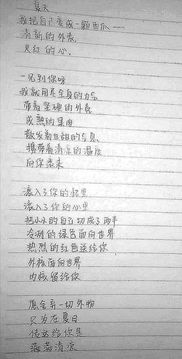 夏天
我把自己变成一颗西瓜——
清新的外表
火红的心。
一见到你呀
我就用尽全身的力气
带着坚硬的外壳
成熟的果肉
散发着甜甜的气息
携带着清凉的温度
向你滚来
滚入了你的怀里
滚入了你的心里
把小小的自己切成了两半
冷冽的绿色面向世界
热烈的红色送给你
外壳面向世界
内核留给你
愿舍弃一切外物
只为在夏日
传送给你是
满满清凉